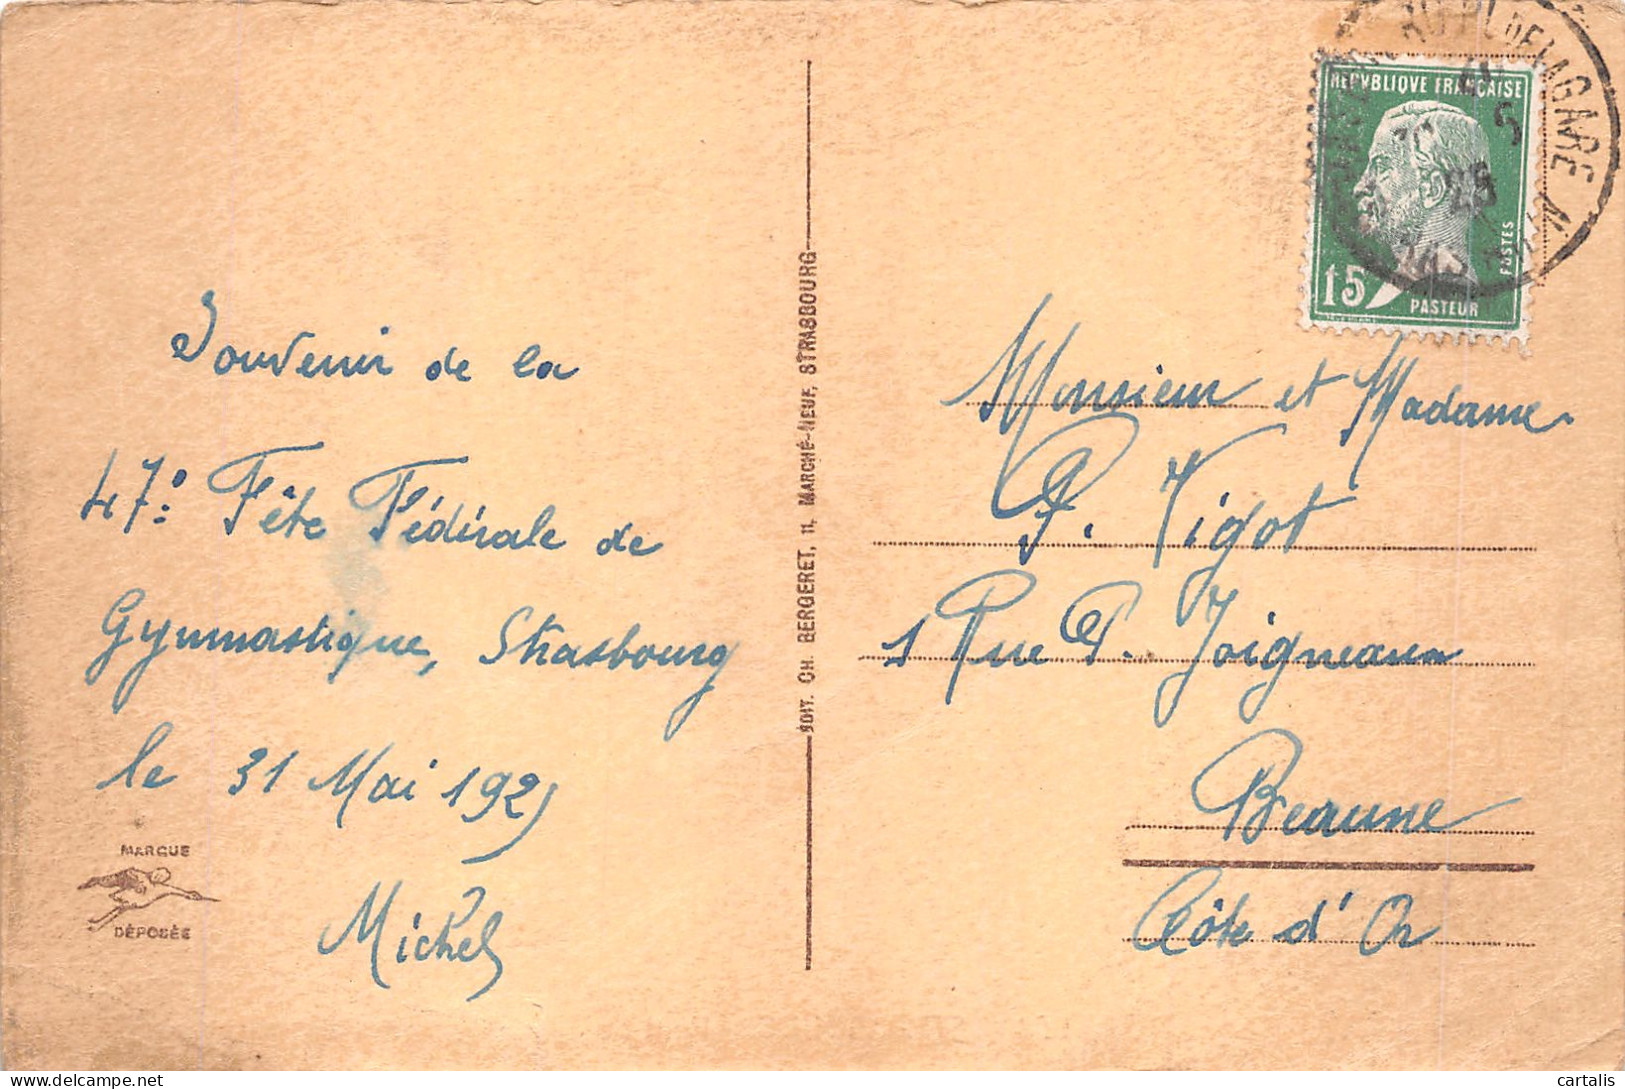 Souvenir de la
47e Fête Fédérale de
Gymnastique, Strasbourg
le 31 Mai 1925
Michel
MARQUE
DÉPOSÉE
ÉDIT. CH. BERGERET, 11, MARCHÉ-NEUF, STRASBOURG
REPVBLIQVE FRANÇAISE
POSTES
15c
PASTEUR
PL DE LA GARE
5
25
Monsieur et Madame
P. Vigot
1 Rue P. Joigneaux
Beaune
Côte d'Or
cartalis